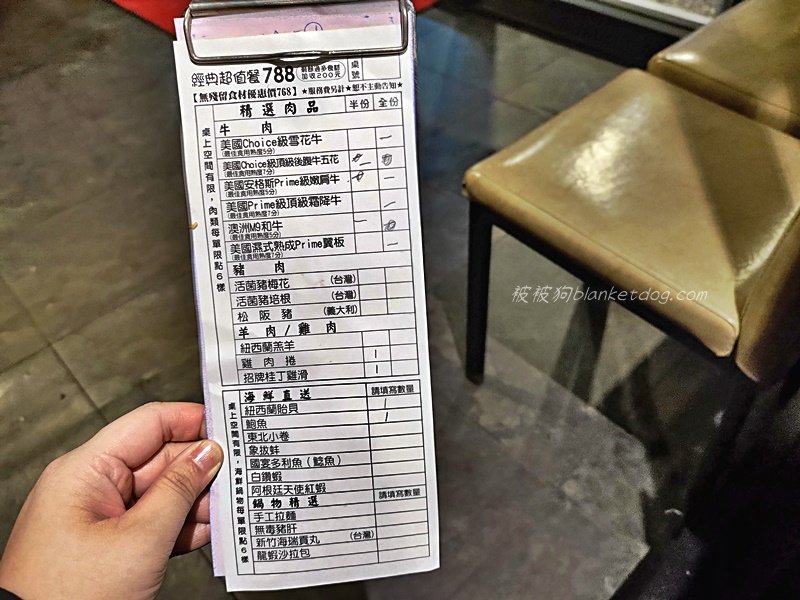 經典超值餐788
加收200元
桌號
【無殘留食材優惠價768】★服務費另計★恕不主動告知★
精選肉品 半份 全份
桌上空間有限，肉類每單限點6樣
牛 肉
美國Choice級雪花牛
(最佳食用熟度5分)
美國Choice級頂級後腹牛五花
(最佳食用熟度7分)
美國安格斯Prime級嫩肩牛
(最佳食用熟度5分)
美國Prime級頂級霜降牛
(最佳食用熟度7分)
澳洲M9和牛
(最佳食用熟度5分)
美國濕式熟成Prime翼板
(最佳食用熟度7分)
豬 肉
活菌豬梅花 (台灣)
活菌豬培根 (台灣)
松阪豬 (義大利)
羊肉/雞肉
紐西蘭羔羊
雞肉捲
招牌桂丁雞滑
桌上空間有限，海鮮鍋物每單限點6樣
海鮮直送 請填寫數量
紐西蘭胎貝
鮑魚
東北小卷
象拔蚌
國宴多利魚(鯰魚)
白鑽蝦
阿根廷天使紅蝦
鍋物精選 請填寫數量
手工拉麵
無毒豬肝
新竹海瑞貢丸 (台灣)
龍蝦沙拉包
被被狗blanketdog.com